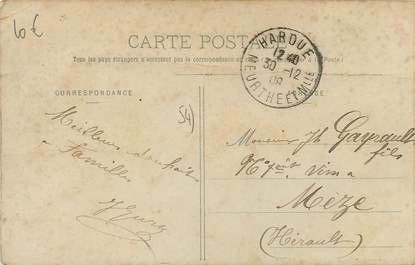 10 €
CARTE POSTALE
Tous les pays étrangers n'acceptent pas la correspondance au
HAROUE
12 40
30 -12
08
MEURTHE ET Mlle
CORRESPONDANCE
54
Meilleurs souhaits
a Familles
Monsieur Jh Gayrault
fils
Négoct Vins
Mèze
(Hérault)